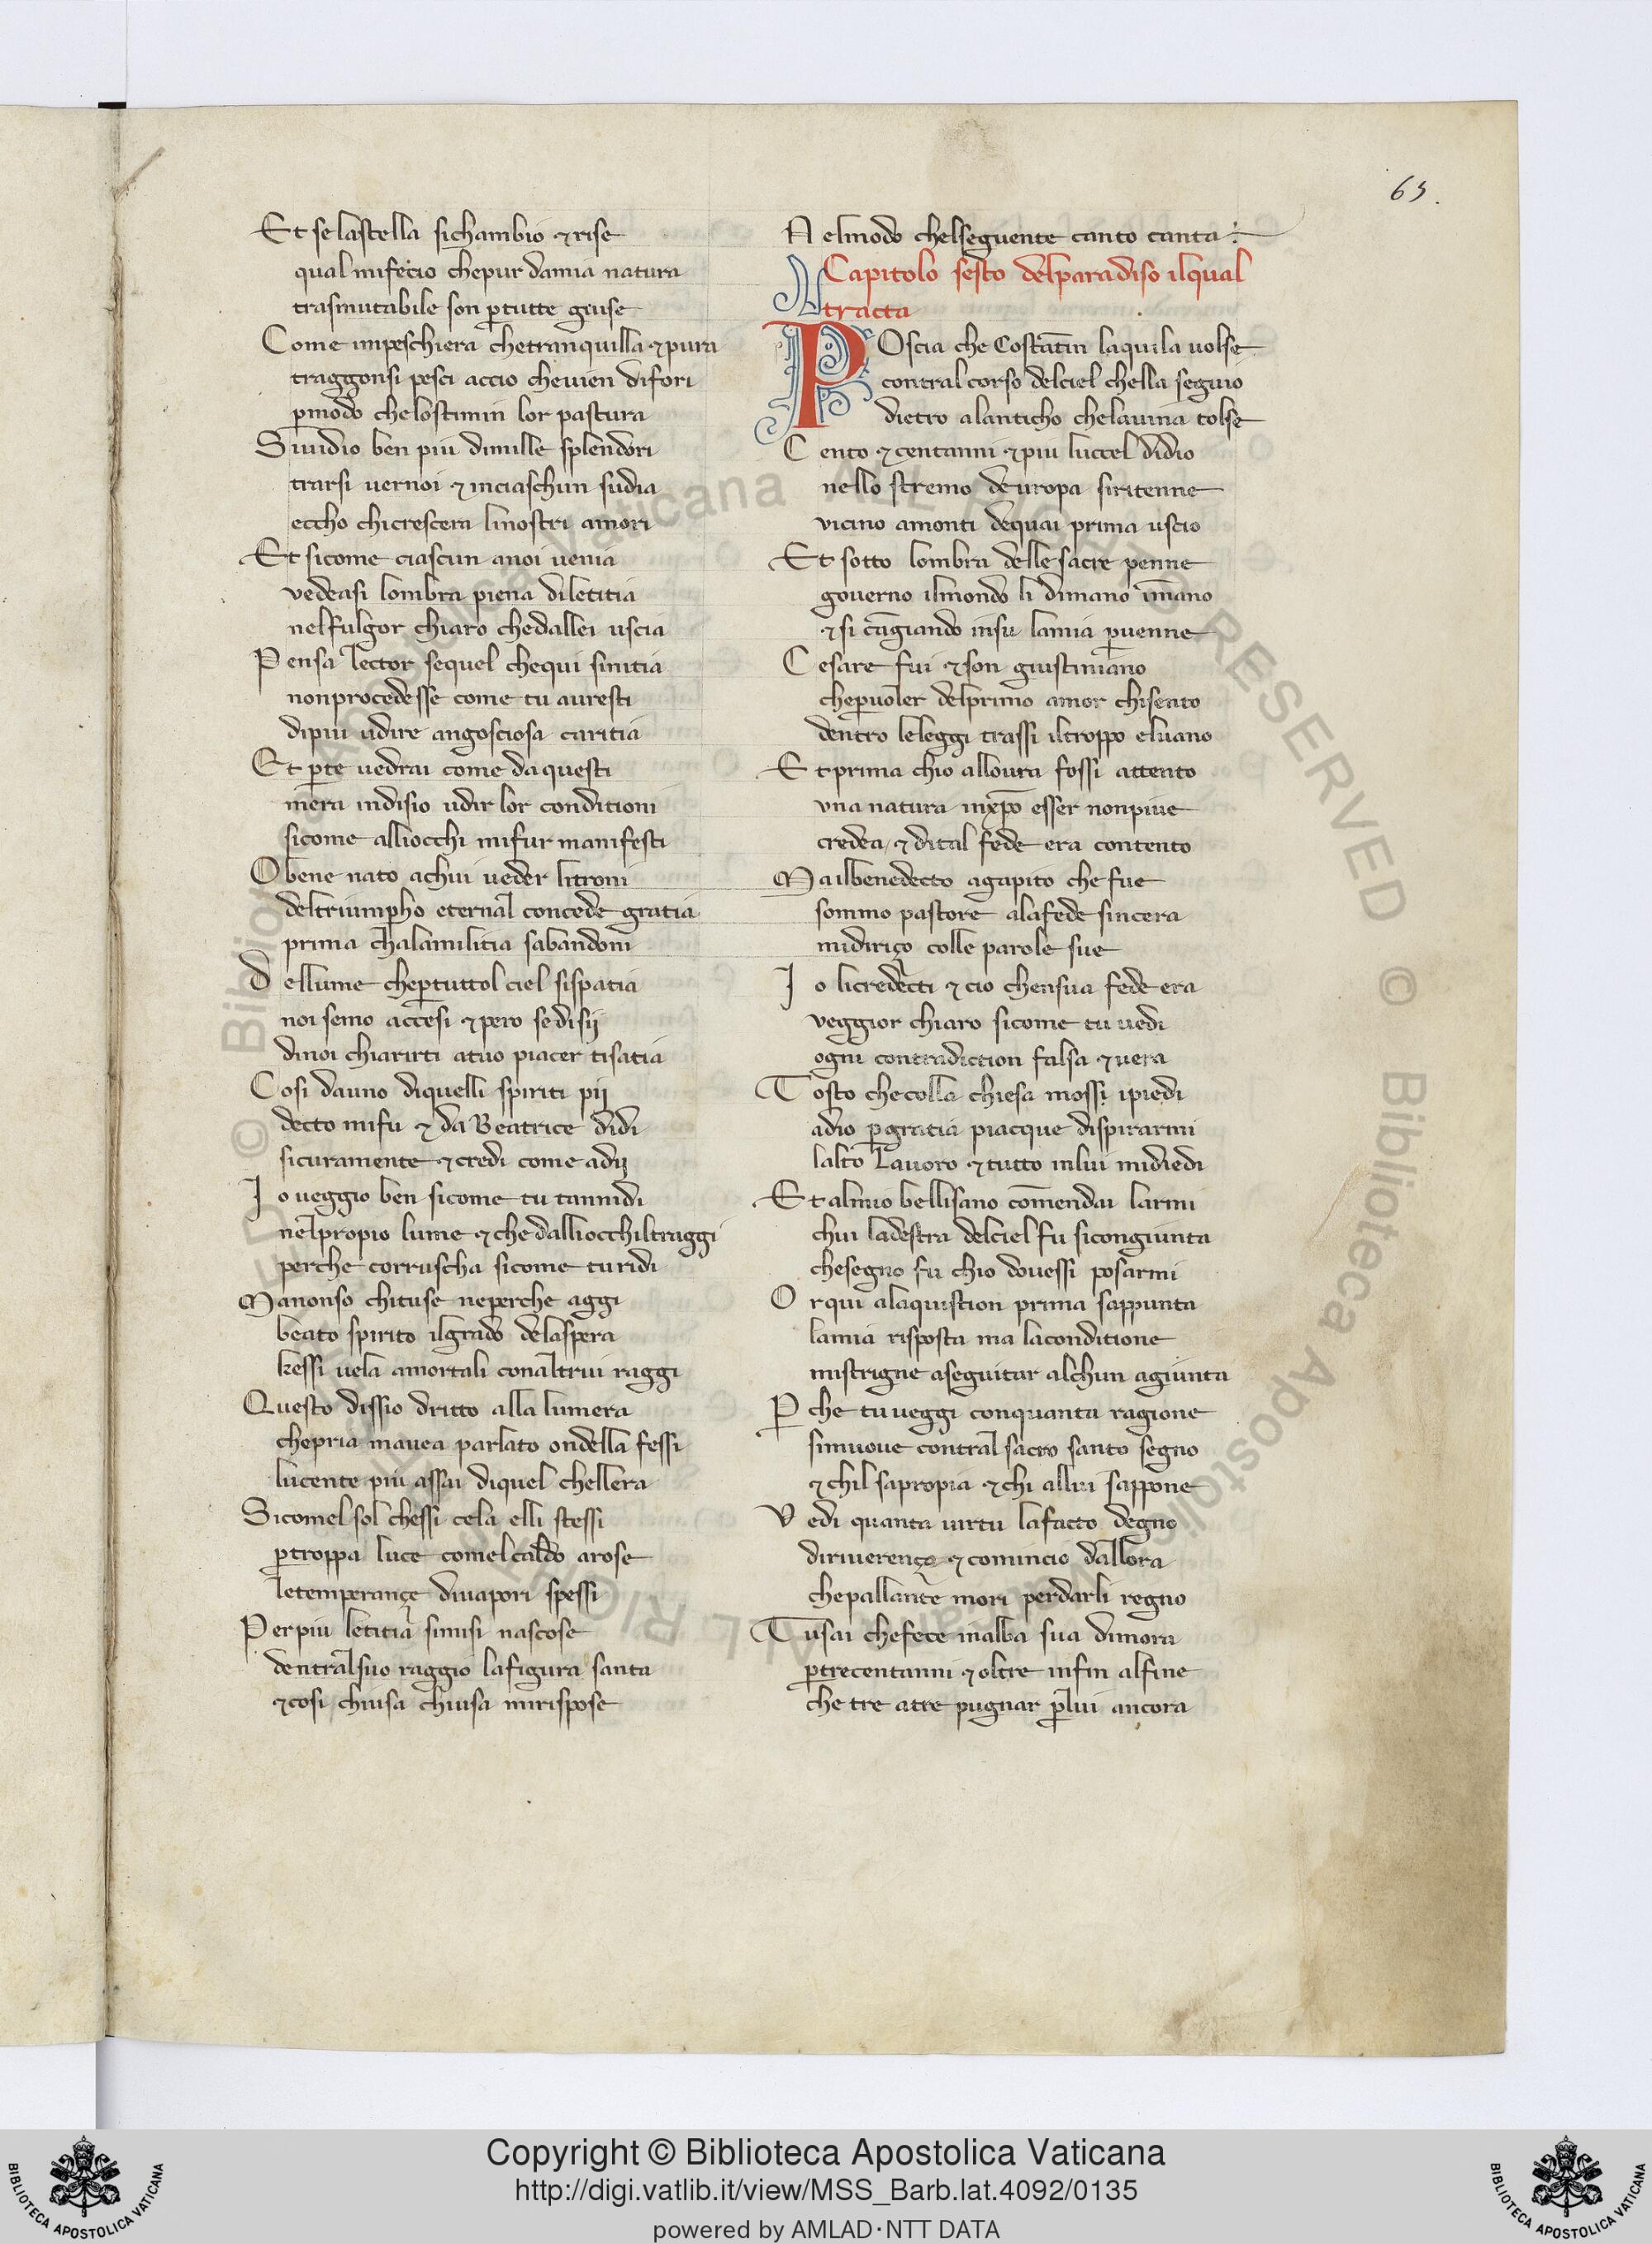 65.
Et se lastella sichambio ⁊ rise
qual mifecio chepur damia natura
trasmutabile son ꝑtutte guise
Come impeschiera chetranquilla ⁊ pura
traggonsi pesci accio chevien difori
ꝑmodo chelostimin lor pastura
Siuidio ben piu dimille splendori
trarsi uernoi ⁊ inciaschun sudia
eccho chicrescera linostri amori
Et sicome ciascun anoi uenia
vedeasi lombra piena diletitia
nelfulgor chiaro chedallei uscia
Pensa lector sequel chequi sinitia
nonprocedesse come tu auresti
dipiu udire angosciosa caritia
Et ꝑte uedrai come daquesti
mera indisio udir lor conditioni
sicome alliocchi mifur manifesti
Obene nato achui ueder litroni
deltriumpho eternal concede gratia
prima chalamilitia sabandoni
Dellume cheꝑtuttol ciel sispatia
noi semo accesi ⁊ pero sedisij
dinoi chiarirti atuo piacer tisatia
Cosi dauno diquelli spiriti pij
decto mifu ⁊ da Beatrice didi
sicuramente ⁊ credi come adij
Io ueggio ben sicome tu tannidi
nelpropio lume ⁊ che dalliocchiltraggi
perche corruscha sicome turidi
Manonso chituse neperche aggi
beato spirito ilgrado delaspera
kessi uela amortali conaltrui raggi
Questo dissio dritto alla lumera
chepria mauea parlato ondella fessi
lucente piu assai diquel chellera
Sicomel sol chessi cela elli stessi
ꝑtroppa luce comel caldo arose
letemperançe diuapori spessi
Perpiu letitia simisi nascose
dentralsuo raggio lafigura santa
⁊ cosi chiusa chiusa mirispose
Nelmodo chelseguente canto canta
Capitolo sesto delparadiso ilqual
tracta
POscia che Costātin laquila uolse
contral corso delciel chella seguio
dietro alanticho chelauina tolse
Cento ⁊ centanni ⁊ piu luccel didio
nello stremo deuropa siritenne
vicino amonti dequai prima uscio
Et sotto lombra delle sacre penne
gouerno ilmondo li dimano īmano
⁊ si cāgiando insu lamia ꝑuenne
Cesare fui ⁊ son giustiniano
cheꝑuoler delprimo amor chisento
dentro leleggi trassi iltroppo eluano
Et prima chio alloura fossi attento
vna natura inxp̄o esser nonpiue
credea ⁊ dital fede era contento
Mailbenedecto agapito che fue
sommo pastore alafede sincera
midiriço colle parole sue
Io licredecti ⁊ cio chensua fede era
veggior chiaro sicome tu uedi
ogni contradiction falsa ⁊ uera
Tosto checolla chiesa mossi ipiedi
adio ꝑgratia piacque dispirarmi
lalto lauoro ⁊ tutto inlui midiedi
Et almio bellisano com̄endai larmi
chui ladestra delciel fu sicongiunta
chesegno fu chio douessi posarmi
Or qui alaquistion prima sappunta
lamia risposta ma laconditione
mistrigne aseguitar alchun agiunta
Ꝑche tu ueggi conquanta ragione
simuoue contral sacro santo segno
⁊ chil sapropia ⁊ chi allui sappone
Vedi quanta uirtu lafacto degno
diriuerençe ⁊ comincio dallora
chepallante mori perdarli regno
Tusai chefece inalba sua dimora
ꝑtrecentanni ⁊ oltre infin alfine
che tre atre pugnar ꝑlui ancora
Copyright © Biblioteca Apostolica Vaticana
http://digi.vatlib.it/view/MSS_Barb.lat.4092/0135
powered by AMLAD·NTT DATA
BIBLIOTECA APOSTOLICA VATICANA
BIBLIOTECA APOSTOLICA VATICANA